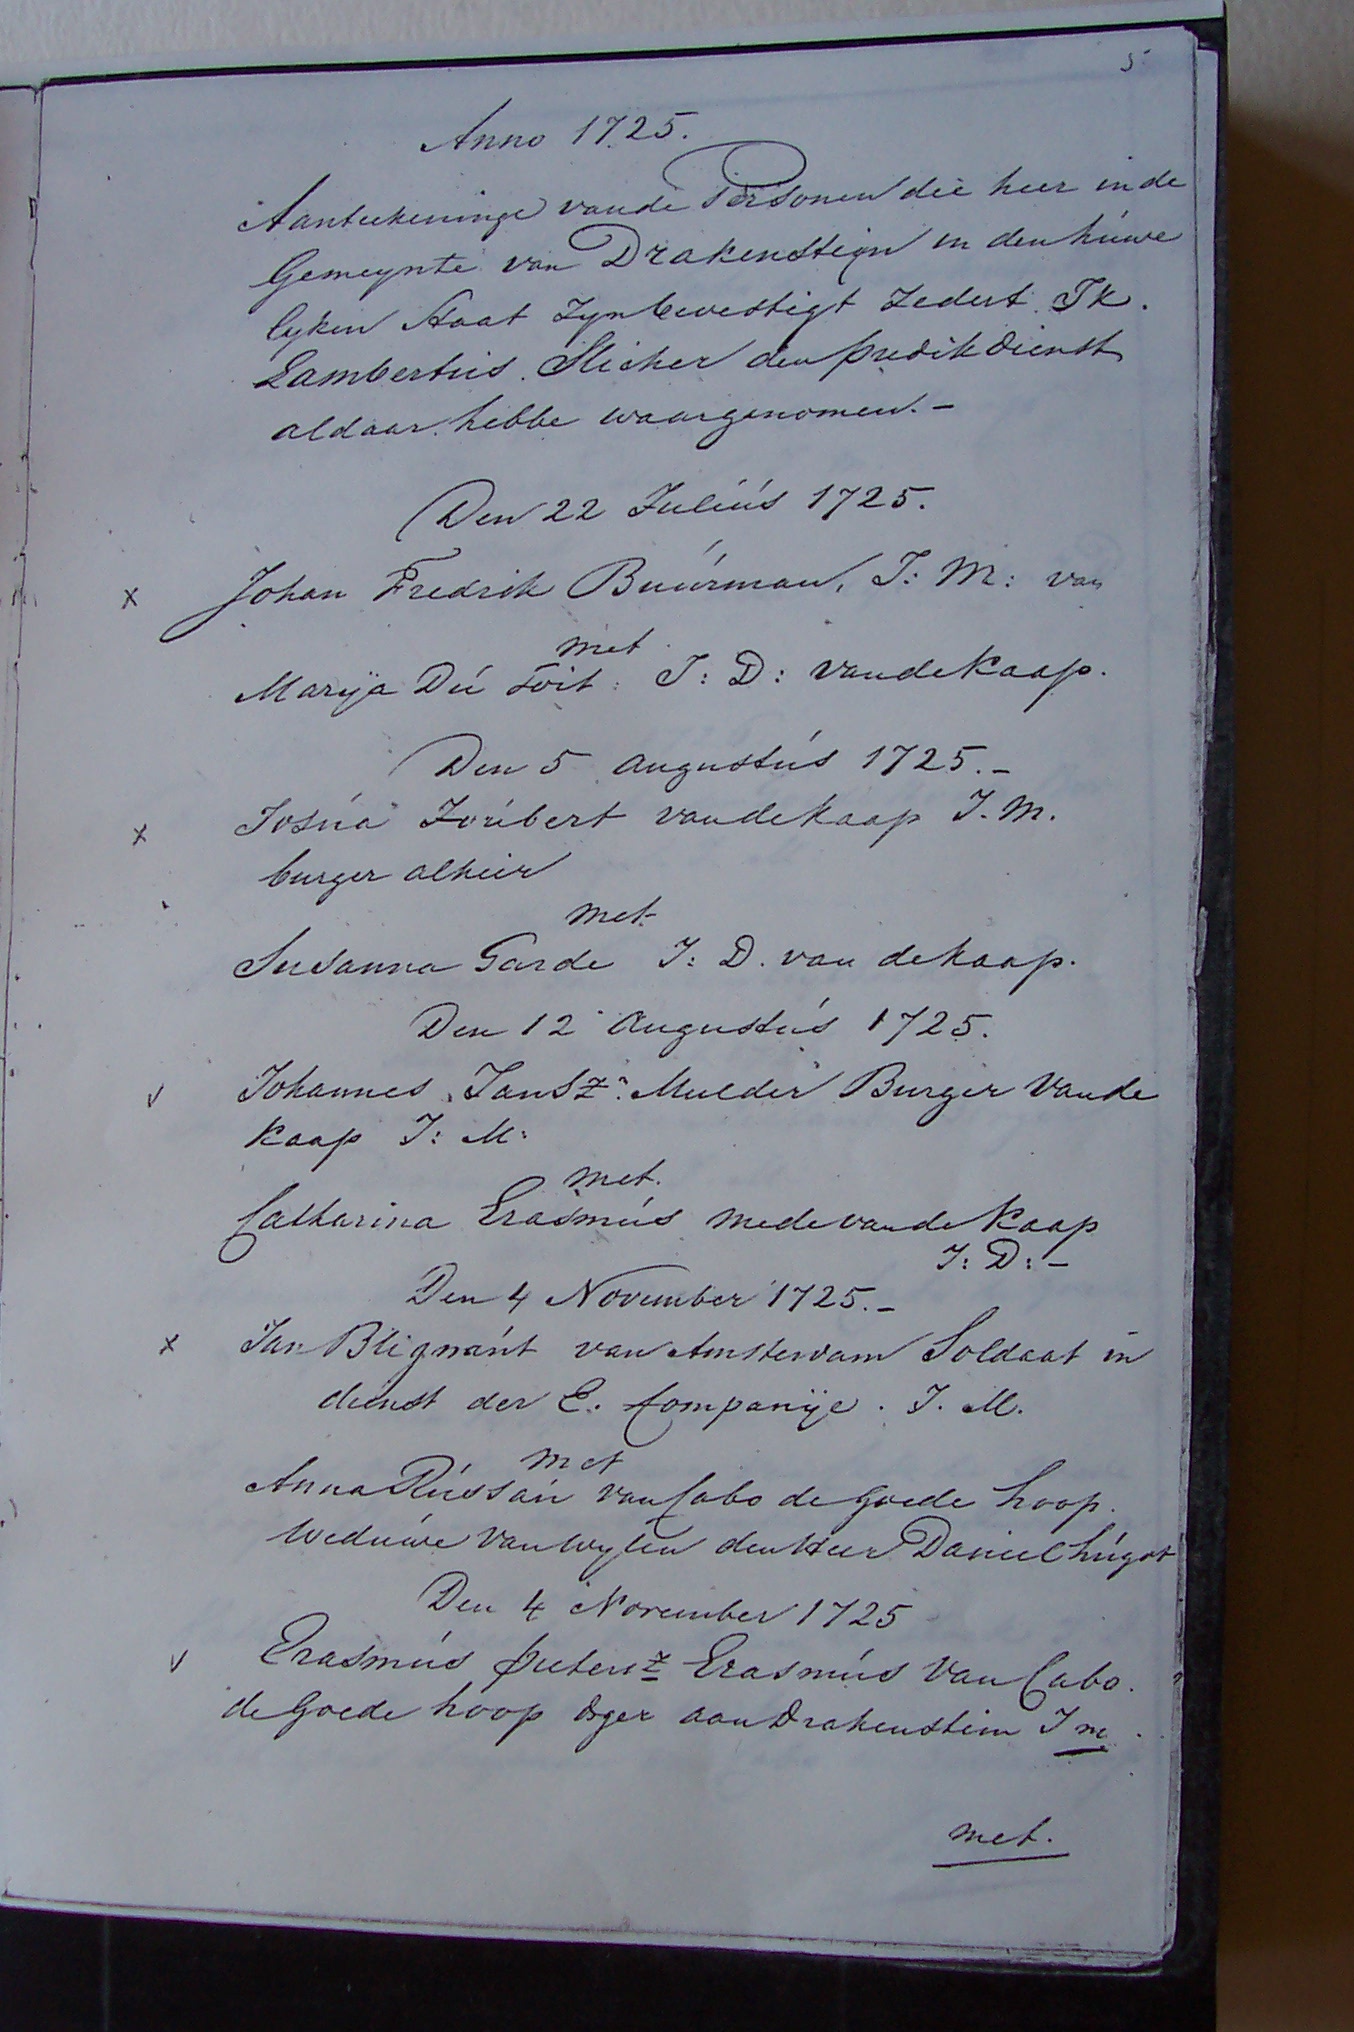 5
Anno 1725.
Aanteekeninge vande Personen die heer in de
Gemeynte van Drakensteijn in den húwe
lyken Staat Zyn bevestigt Zedert Ik.
Lambertús Slicher den predikdienst
aldaar hebbe waargenomen. -
Den 22 Juliús 1725.
x Johan Fredrik Buúrman, J: M: van
met
Marÿa Dú toit: J: D: vande Kaap.
Den 5 augustús 1725. -
x Josúa Joúbert vande kaap J. M.
burger alhier
met
Susanna Garde J: D. van de kaap.
Den 12 Augustús 1725.
v Johannes Jansz: Mulder Burger Vande
Kaap J: M:
met.
Catharina Erasmús mede vande Kaap
J: D: -
Den 4 November 1725. -
x Jan Blignaút van Amsterdam Soldaat in
dienst der E. Compagnÿe. J. M.
met
Anna Rússaú van Cabo de Goede hoop.
Wedúwe van wylen den Heer Daniel húgot
Den 4 November 1725
v Erasmús pietersz Erasmús Van Cabo.
de Goede hoop Bger aan Drakenstein J m.
met.